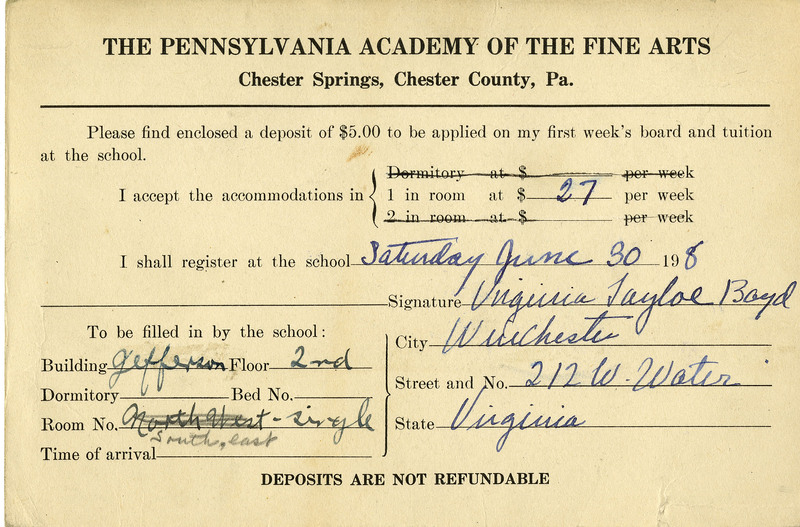 THE PENNSYLVANIA ACADEMY OF THE FINE ARTS
Chester Springs, Chester County, Pa.
Please find enclosed a deposit of $5.00 to be applied on my first week's board and tuition
at the school.
Dormitory at $ per week
I accept the accommodations in 1 in room at $ 27 per week
2 in room at $ per week
I shall register at the school Saturday June 30 198
Signature Virginia Tayloe Boyd
To be filled in by the school:
City Winchester
Building Jefferson Floor 2nd
Street and No. 212 W. Water
Dormitory Bed No.
Room No. North West - single
South, east
State Virginia
Time of arrival
DEPOSITS ARE NOT REFUNDABLE